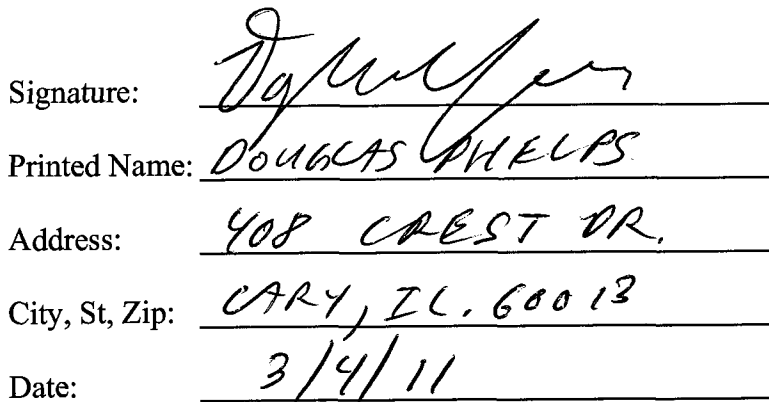 Signature:
Printed Name: DOUGLAS PHELPS
Address: 408 CREST DR.
City, St, Zip: CARY, IL. 60013
Date: 3/4/11